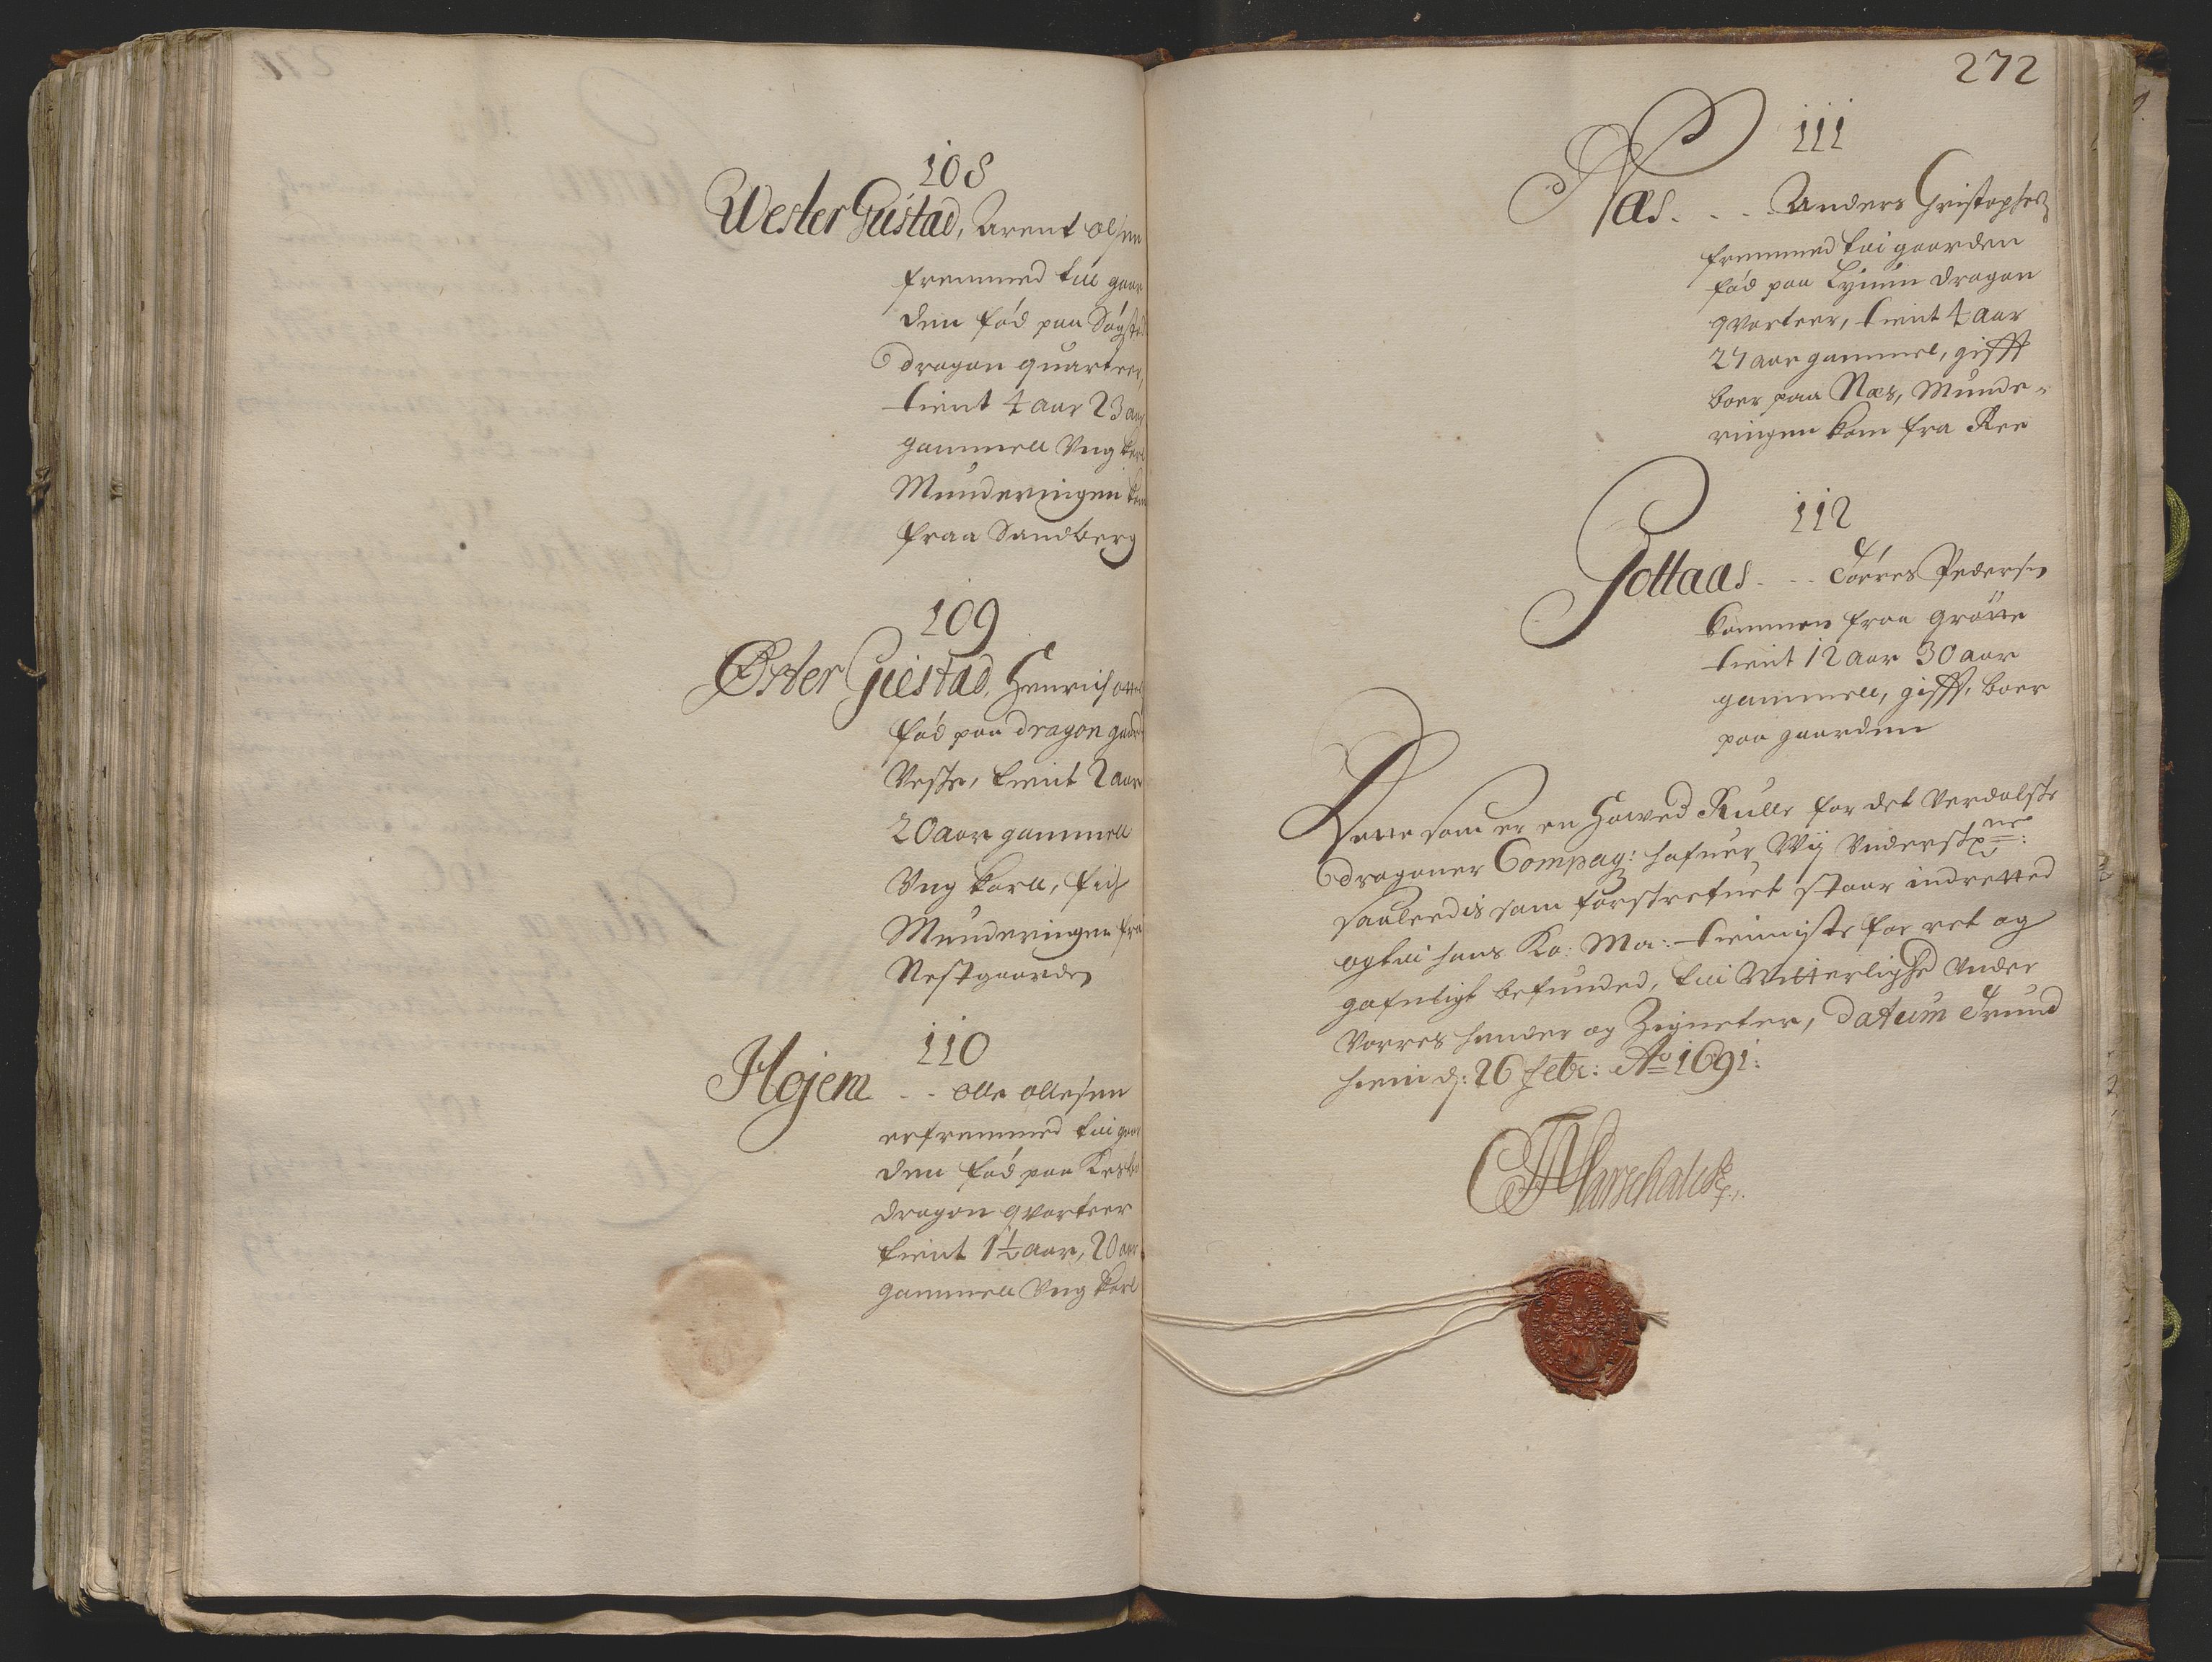 108
Wester Gustad, Arent olsen
fremmed till gaar
den fød paa Søgsted
dragon quarteer,
tient 4 aar 23 aar
gammell Vng karl
Munderingen kom
fraa Sandberg
109
Øster Giestad, Henrich
fød paa dragon gaard
Veste, tient 2 aar
20 aar gammell
Vng karll, fich
Munderingen fra
Nestgaarden
110
Hojem - - olle ollesen
er fremmed till gaar
den fød paa
dragon qvarteer
tient 1½ aar, 20 aar
gammell Vng karl
272
111
Næs. - - . Anders Christophers
fremmed till gaarden
fød paa Lynum dragon
qvarteer, tient 4 aar
27 aar gammel, gifft
boer paa Næs, Munde-
ringen kom fra Ree
112
Jottaas. - - Torres Pedersen
kommen fraa grötte
tient 12 aar 30 aar
gammell, gifft, boer
paa gaarden
Dette som er en Howed Rulle for det Verdalske
dragoner Compag: hafuer Wij Vnderskr ne:
saaleedis som forskrefuet staar indretted
og till hans Ko: Ma: tienniste for ret og
gafnligt befunded, till Witterlighed Vnder
Vorres hender og Zigneter, datum Trund
hiem d: 26 febr: Ao 1691:
CTMarschalck